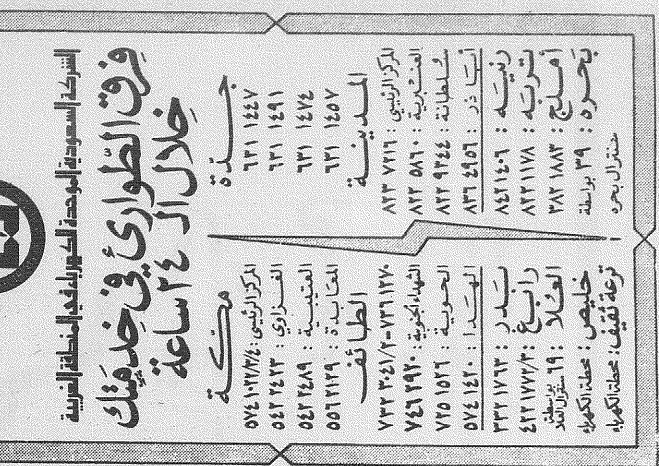 الشركة السعودية الموحدة للكهرباء في المنطقة الغربية
فرق الطوارئ في خدمتك
خلال الـ ٢٤ ساعة
جدة
٦٣١ ١٤٤٧
٦٣١ ١٤٩١
٦٣١ ١٤٧٤
٦٣١ ١٤٥٧
المدينة
المركز الرئيسي : ٨٢٣ ٧٢١٦
العنبرية : ٨٢٢ ٥٨٦٠
سلطانة : ٨٢٢ ٩٣٤٤
أبيار : ٨٣٦ ٤٩٥٦
رنية : ٨٤٢ ١٤٠٦
تربة : ٨٢٢ ١١٧٨
أملج : ٣٨٢ ١٨٨٣
بحره : ٣٩ بواسطة
سنترال بحره
مكة
المركز الرئيسي : ٥٧٤ ١٠٢٢/٣/٤
الغزاوي : ٥٤٢ ٢٤٢٣
العتيبية : ٥٤٢ ٢٤٨٩
المعابدة : ٥٥٦ ٢١٢٩
الطائف
٧٣٦ ١٢٧٠ - ٧٣٢ ٢٠٤١/٢
الشهداء الجنوبية : ٧٤٦ ٢٩٢٠
الحوية : ٧٢٥ ١٥٢٦
الهدا : ٥٧٤ ١٤٢٠
بدر : ٣٣٢ ١٧٦٣
رابغ : ٤٢٢ ١٧٧٢/٣
العلا : ٦٩ بواسطة سنترال العلا
خليص : محطة الكهرباء
ترعة ثقيف : محطة الكهرباء